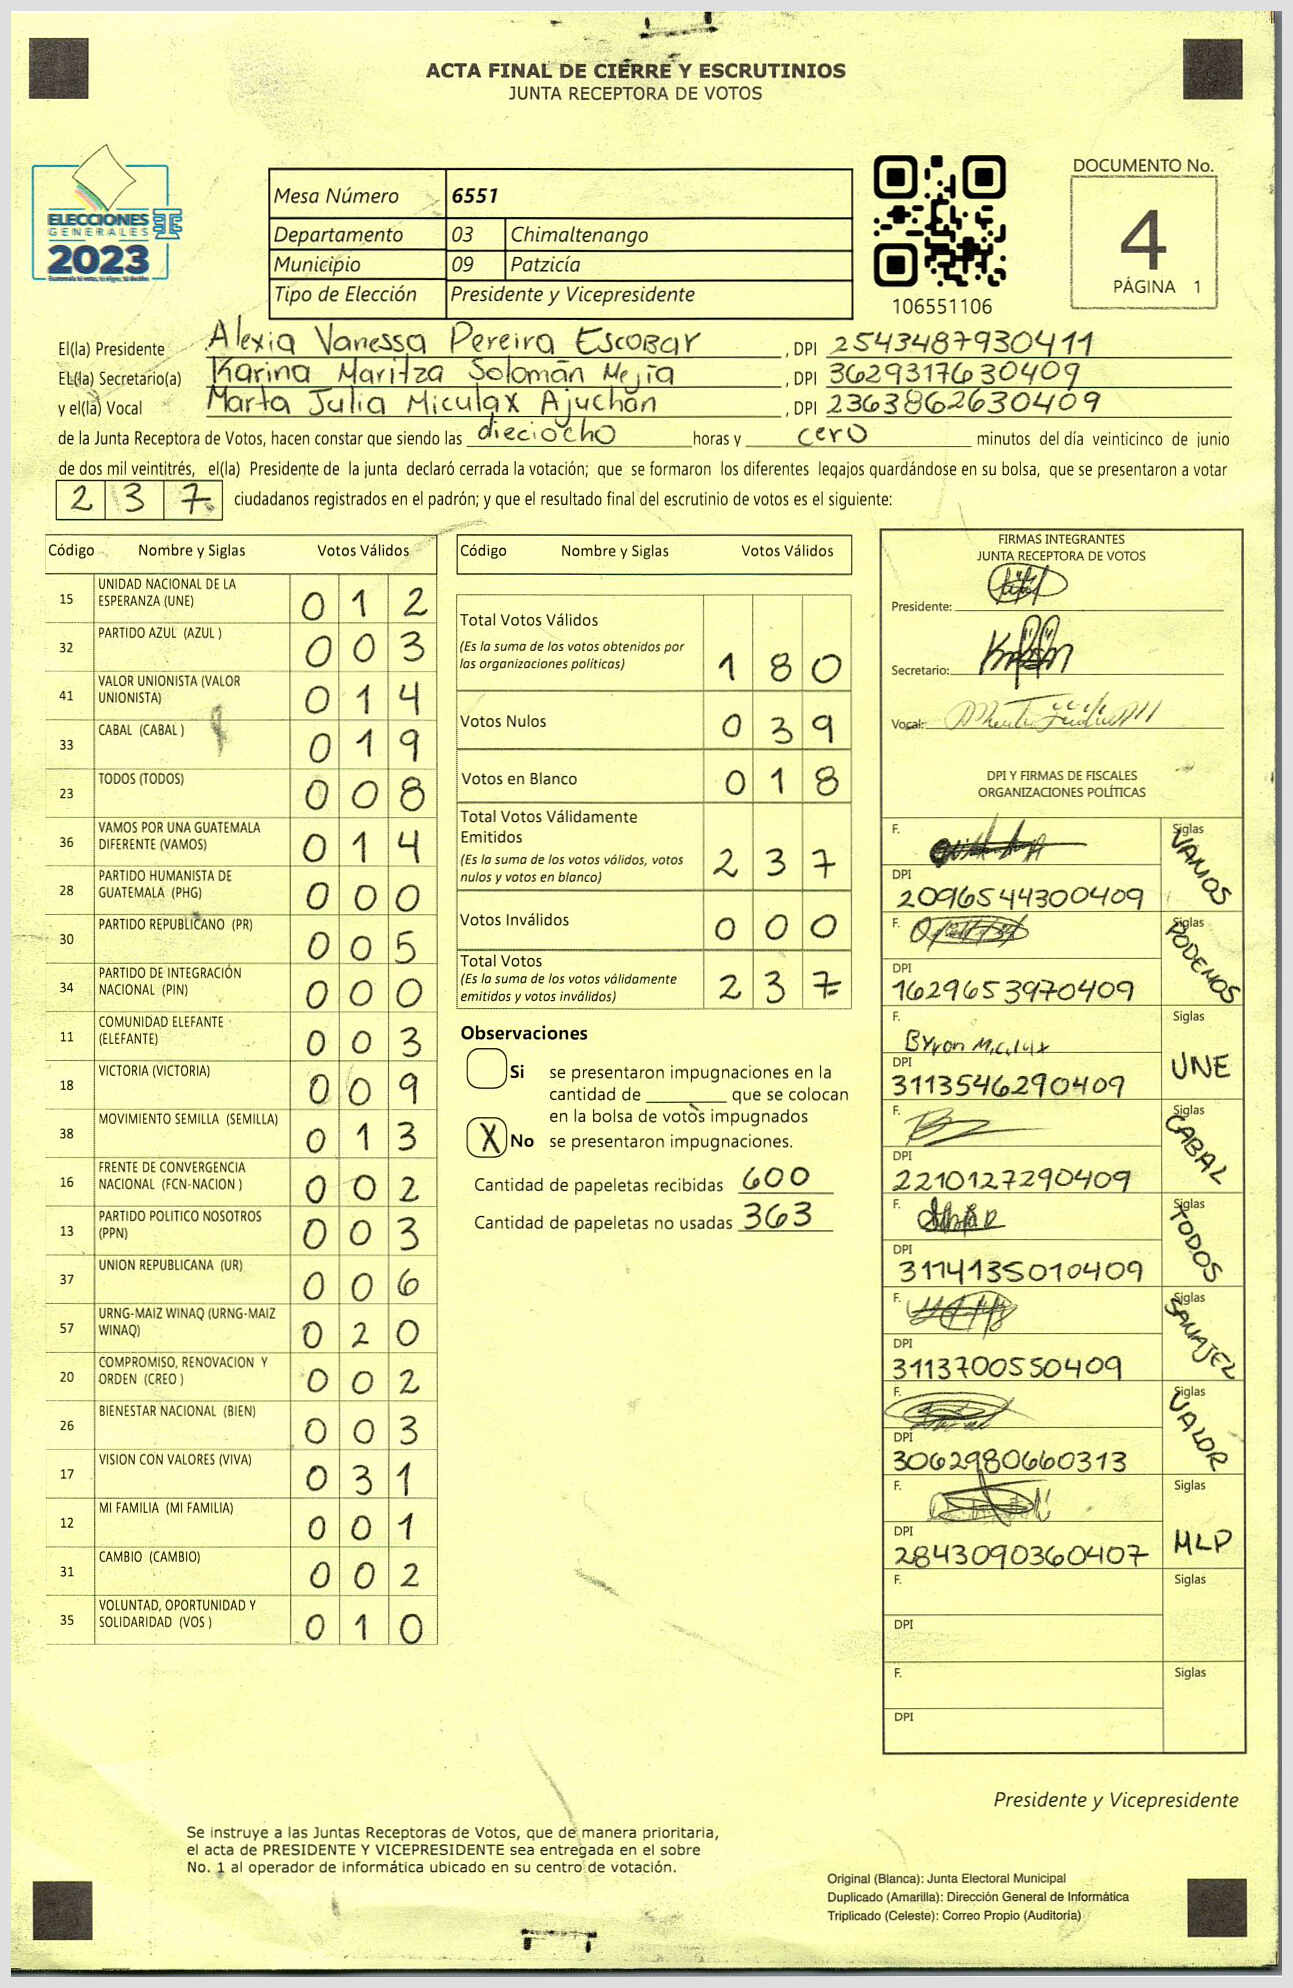 ACTA FINAL DE CIERRE Y ESCRUTINIOS
JUNTA RECEPTORA DE VOTOS
ELECCIONES
GENERALES
2023
Mesa Número 6551
Departamento 03 Chimaltenango
Municipio 09 Patzicía
Tipo de Elección Presidente y Vicepresidente
106551106
DOCUMENTO No.
4
PÁGINA 1
El(la) Presidente Alexia Vanessa Pereira Escobar , DPI 2543487930411
EL(la) Secretario(a) Karina Maritza Solomán Mejía , DPI 3629317630409
y el(la) Vocal Marta Julia Miculax Ajuchán , DPI 2363862630409
de la Junta Receptora de Votos, hacen constar que siendo las dieciocho horas y cero minutos del día veinticinco de junio
de dos mil veintitrés, el(la) Presidente de la junta declaró cerrada la votación; que se formaron los diferentes legajos guardándose en su bolsa, que se presentaron a votar
2 3 7 ciudadanos registrados en el padrón; y que el resultado final del escrutinio de votos es el siguiente:
Código Nombre y Siglas Votos Válidos
15 UNIDAD NACIONAL DE LA ESPERANZA (UNE) 0 1 2
32 PARTIDO AZUL (AZUL ) 0 0 3
41 VALOR UNIONISTA (VALOR UNIONISTA) 0 1 4
33 CABAL (CABAL ) 0 1 9
23 TODOS (TODOS) 0 0 8
36 VAMOS POR UNA GUATEMALA DIFERENTE (VAMOS) 0 1 4
28 PARTIDO HUMANISTA DE GUATEMALA (PHG) 0 0 0
30 PARTIDO REPUBLICANO (PR) 0 0 5
34 PARTIDO DE INTEGRACIÓN NACIONAL (PIN) 0 0 0
11 COMUNIDAD ELEFANTE (ELEFANTE) 0 0 3
18 VICTORIA (VICTORIA) 0 0 9
38 MOVIMIENTO SEMILLA (SEMILLA) 0 1 3
16 FRENTE DE CONVERGENCIA NACIONAL (FCN-NACION ) 0 0 2
13 PARTIDO POLITICO NOSOTROS (PPN) 0 0 3
37 UNION REPUBLICANA (UR) 0 0 6
57 URNG-MAIZ WINAQ (URNG-MAIZ WINAQ) 0 2 0
20 COMPROMISO, RENOVACION Y ORDEN (CREO ) 0 0 2
26 BIENESTAR NACIONAL (BIEN) 0 0 3
17 VISION CON VALORES (VIVA) 0 3 1
12 MI FAMILIA (MI FAMILIA) 0 0 1
31 CAMBIO (CAMBIO) 0 0 2
35 VOLUNTAD, OPORTUNIDAD Y SOLIDARIDAD (VOS ) 0 1 0
Código Nombre y Siglas Votos Válidos
Total Votos Válidos
(Es la suma de los votos obtenidos por
las organizaciones políticas) 1 8 0
Votos Nulos 0 3 9
Votos en Blanco 0 1 8
Total Votos Válidamente
Emitidos
(Es la suma de los votos válidos, votos
nulos y votos en blanco) 2 3 7
Votos Inválidos 0 0 0
Total Votos
(Es la suma de los votos válidamente
emitidos y votos inválidos) 2 3 7
Observaciones
Si se presentaron impugnaciones en la
cantidad de ________ que se colocan
en la bolsa de votos impugnados
X No se presentaron impugnaciones.
Cantidad de papeletas recibidas 600
Cantidad de papeletas no usadas 363
FIRMAS INTEGRANTES
JUNTA RECEPTORA DE VOTOS
Presidente:
Secretario:
Vocal:
DPI Y FIRMAS DE FISCALES
ORGANIZACIONES POLÍTICAS
F. Siglas VAMOS
DPI 2096544300409
F. Siglas PODEMOS
DPI 1629653970409
F. Byron Miculax Siglas UNE
DPI 3113546290409
F. Siglas CABAL
DPI 2210127290409
F. Siglas TODOS
DPI 3114135010409
F. Siglas
DPI 3113700550409
F. Siglas VALOR
DPI 3062980660313
F. Siglas MLP
DPI 2843090360407
F. Siglas
DPI
F. Siglas
DPI
Presidente y Vicepresidente
Se instruye a las Juntas Receptoras de Votos, que de manera prioritaria,
el acta de PRESIDENTE Y VICEPRESIDENTE sea entregada en el sobre
No. 1 al operador de informática ubicado en su centro de votación.
Original (Blanca): Junta Electoral Municipal
Duplicado (Amarilla): Dirección General de Informática
Triplicado (Celeste): Correo Propio (Auditoria)